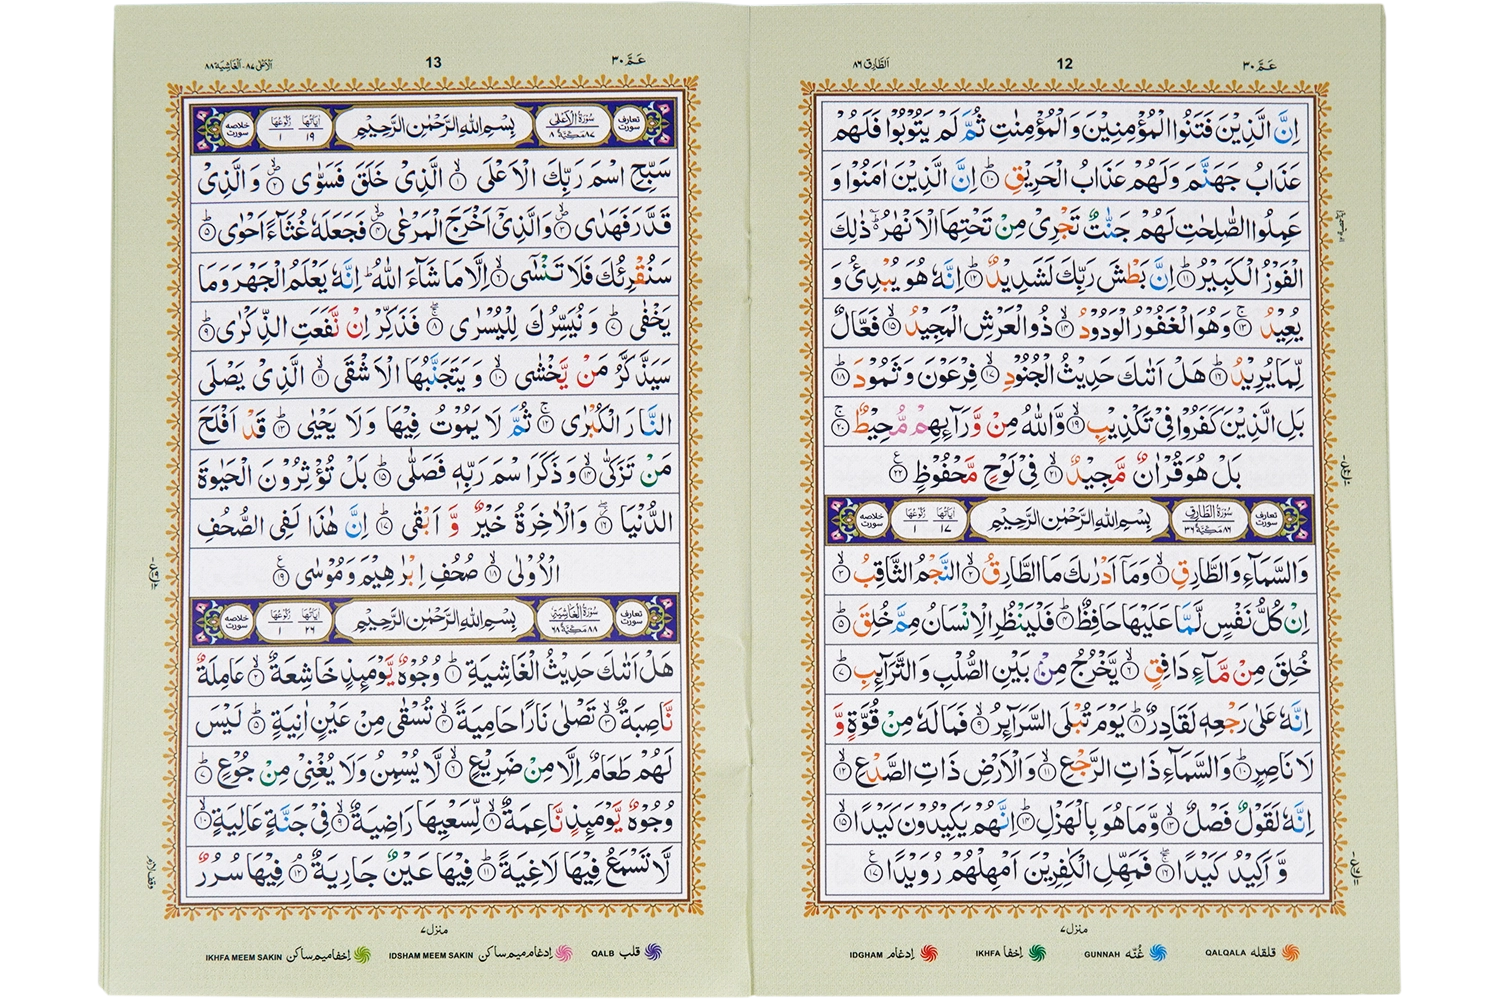 عَمَّ ٣٠
12
اَلطَّارِق ٨٦
اِنَّ الَّذِيْنَ فَتَنُوا الْمُؤْمِنِيْنَ وَالْمُؤْمِنٰتِ ثُمَّ لَمْ يَتُوْبُوْا فَلَهُمْ
عَذَابُ جَهَنَّمَ وَلَهُمْ عَذَابُ الْحَرِيْقِ ۱۰ اِنَّ الَّذِيْنَ اٰمَنُوْا وَ
عَمِلُوا الصّٰلِحٰتِ لَهُمْ جَنّٰتٌ تَجْرِيْ مِنْ تَحْتِهَا الْاَنْهٰرُ ذٰلِكَ
الْفَوْزُ الْكَبِيْرُ ۱۱ اِنَّ بَطْشَ رَبِّكَ لَشَدِيْدٌ ۱۲ اِنَّهٗ هُوَ يُبْدِئُ وَ
يُعِيْدُ ۱۳ وَهُوَ الْغَفُوْرُ الْوَدُوْدُ ۱۴ ذُو الْعَرْشِ الْمَجِيْدُ ۱۵ فَعَّالٌ
لِّمَا يُرِيْدُ ۱۶ هَلْ اَتٰىكَ حَدِيْثُ الْجُنُوْدِ ۱۷ فِرْعَوْنَ وَ ثَمُوْدَ ۱۸
بَلِ الَّذِيْنَ كَفَرُوْا فِيْ تَكْذِيْبٍ ۱۹ وَّاللّٰهُ مِنْ وَّرَآئِهِمْ مُّحِيْطٌ ۲۰
بَلْ هُوَ قُرْاٰنٌ مَّجِيْدٌ ۲۱ فِيْ لَوْحٍ مَّحْفُوْظٍ ۲۲
تعارف سورت سُوْرَةُ الطَّارِقِ ٨٦ مَكِّيَّةٌ ٣٦ بِسْمِ اللّٰهِ الرَّحْمٰنِ الرَّحِيْمِ اٰيَاتُهَا ١٧ رُكُوْعُهَا ١ خلاصه سورت
وَالسَّمَآءِ وَالطَّارِقِ ۱ وَمَآ اَدْرٰىكَ مَا الطَّارِقُ ۲ النَّجْمُ الثَّاقِبُ ۳
اِنْ كُلُّ نَفْسٍ لَّمَّا عَلَيْهَا حَافِظٌ ۴ فَلْيَنْظُرِ الْاِنْسَانُ مِمَّ خُلِقَ ۵
خُلِقَ مِنْ مَّآءٍ دَافِقٍ ۶ يَّخْرُجُ مِنْۢ بَيْنِ الصُّلْبِ وَ التَّرَآئِبِ ۷
اِنَّهٗ عَلٰى رَجْعِهٖ لَقَادِرٌ ۸ يَوْمَ تُبْلَى السَّرَآئِرُ ۹ فَمَا لَهٗ مِنْ قُوَّةٍ وَّ
لَا نَاصِرٍ ۱۰ وَالسَّمَآءِ ذَاتِ الرَّجْعِ ۱۱ وَالْاَرْضِ ذَاتِ الصَّدْعِ ۱۲
اِنَّهٗ لَقَوْلٌ فَصْلٌ ۱۳ وَّمَا هُوَ بِالْهَزْلِ ۱۴ اِنَّهُمْ يَكِيْدُوْنَ كَيْدًا ۱۵
وَّ اَكِيْدُ كَيْدًا ۱۶ فَمَهِّلِ الْكٰفِرِيْنَ اَمْهِلْهُمْ رُوَيْدًا ۱۷
منزل ٧
قلقله QALQALA غُنّه GUNNAH اِخفا IKHFA اِدغام IDGHAM
عَمَّ ٣٠
13
اَلْاَعْلٰى ٨٧ - اَلْغَاشِيَة ٨٨
تعارف سورت سُوْرَةُ الْاَعْلٰى ٨٧ مَكِّيَّةٌ ٨ بِسْمِ اللّٰهِ الرَّحْمٰنِ الرَّحِيْمِ اٰيَاتُهَا ١٩ رُكُوْعُهَا ١ خلاصه سورت
سَبِّحِ اسْمَ رَبِّكَ الْاَعْلَى ۱ الَّذِيْ خَلَقَ فَسَوّٰى ۲ وَ الَّذِيْ
قَدَّرَ فَهَدٰى ۳ وَالَّذِيْٓ اَخْرَجَ الْمَرْعٰى ۴ فَجَعَلَهٗ غُثَآءً اَحْوٰى ۵
سَنُقْرِئُكَ فَلَا تَنْسٰٓى ۶ اِلَّا مَا شَآءَ اللّٰهُ اِنَّهٗ يَعْلَمُ الْجَهْرَ وَمَا
يَخْفٰى ۷ وَ نُيَسِّرُكَ لِلْيُسْرٰى ۸ فَذَكِّرْ اِنْ نَّفَعَتِ الذِّكْرٰى ۹
سَيَذَّكَّرُ مَنْ يَّخْشٰى ۱۰ وَ يَتَجَنَّبُهَا الْاَشْقَى ۱۱ الَّذِيْ يَصْلَى
النَّارَ الْكُبْرٰى ۱۲ ثُمَّ لَا يَمُوْتُ فِيْهَا وَ لَا يَحْيٰى ۱۳ قَدْ اَفْلَحَ
مَنْ تَزَكّٰى ۱۴ وَ ذَكَرَ اسْمَ رَبِّهٖ فَصَلّٰى ۱۵ بَلْ تُؤْثِرُوْنَ الْحَيٰوةَ
الدُّنْيَا ۱۶ وَالْاٰخِرَةُ خَيْرٌ وَّ اَبْقٰى ۱۷ اِنَّ هٰذَا لَفِي الصُّحُفِ
الْاُوْلٰى ۱۸ صُحُفِ اِبْرٰهِيْمَ وَمُوْسٰى ۱۹
تعارف سورت سُوْرَةُ الْغَاشِيَةِ ٨٨ مَكِّيَّةٌ ٦٨ بِسْمِ اللّٰهِ الرَّحْمٰنِ الرَّحِيْمِ اٰيَاتُهَا ٢٦ رُكُوْعُهَا ١ خلاصه سورت
هَلْ اَتٰىكَ حَدِيْثُ الْغَاشِيَةِ ۱ وُجُوْهٌ يَّوْمَئِذٍ خَاشِعَةٌ ۲ عَامِلَةٌ
نَّاصِبَةٌ ۳ تَصْلٰى نَارًا حَامِيَةً ۴ تُسْقٰى مِنْ عَيْنٍ اٰنِيَةٍ ۵ لَيْسَ
لَهُمْ طَعَامٌ اِلَّا مِنْ ضَرِيْعٍ ۶ لَّا يُسْمِنُ وَلَا يُغْنِيْ مِنْ جُوْعٍ ۷
وُجُوْهٌ يَّوْمَئِذٍ نَّاعِمَةٌ ۸ لِّسَعْيِهَا رَاضِيَةٌ ۹ فِيْ جَنَّةٍ عَالِيَةٍ ۱۰
لَّا تَسْمَعُ فِيْهَا لَاغِيَةً ۱۱ فِيْهَا عَيْنٌ جَارِيَةٌ ۱۲ فِيْهَا سُرُرٌ
منزل ٧
قلب QALB اِدغام میم ساکن IDSHAM MEEM SAKIN اِخفا میم ساکن IKHFA MEEM SAKIN